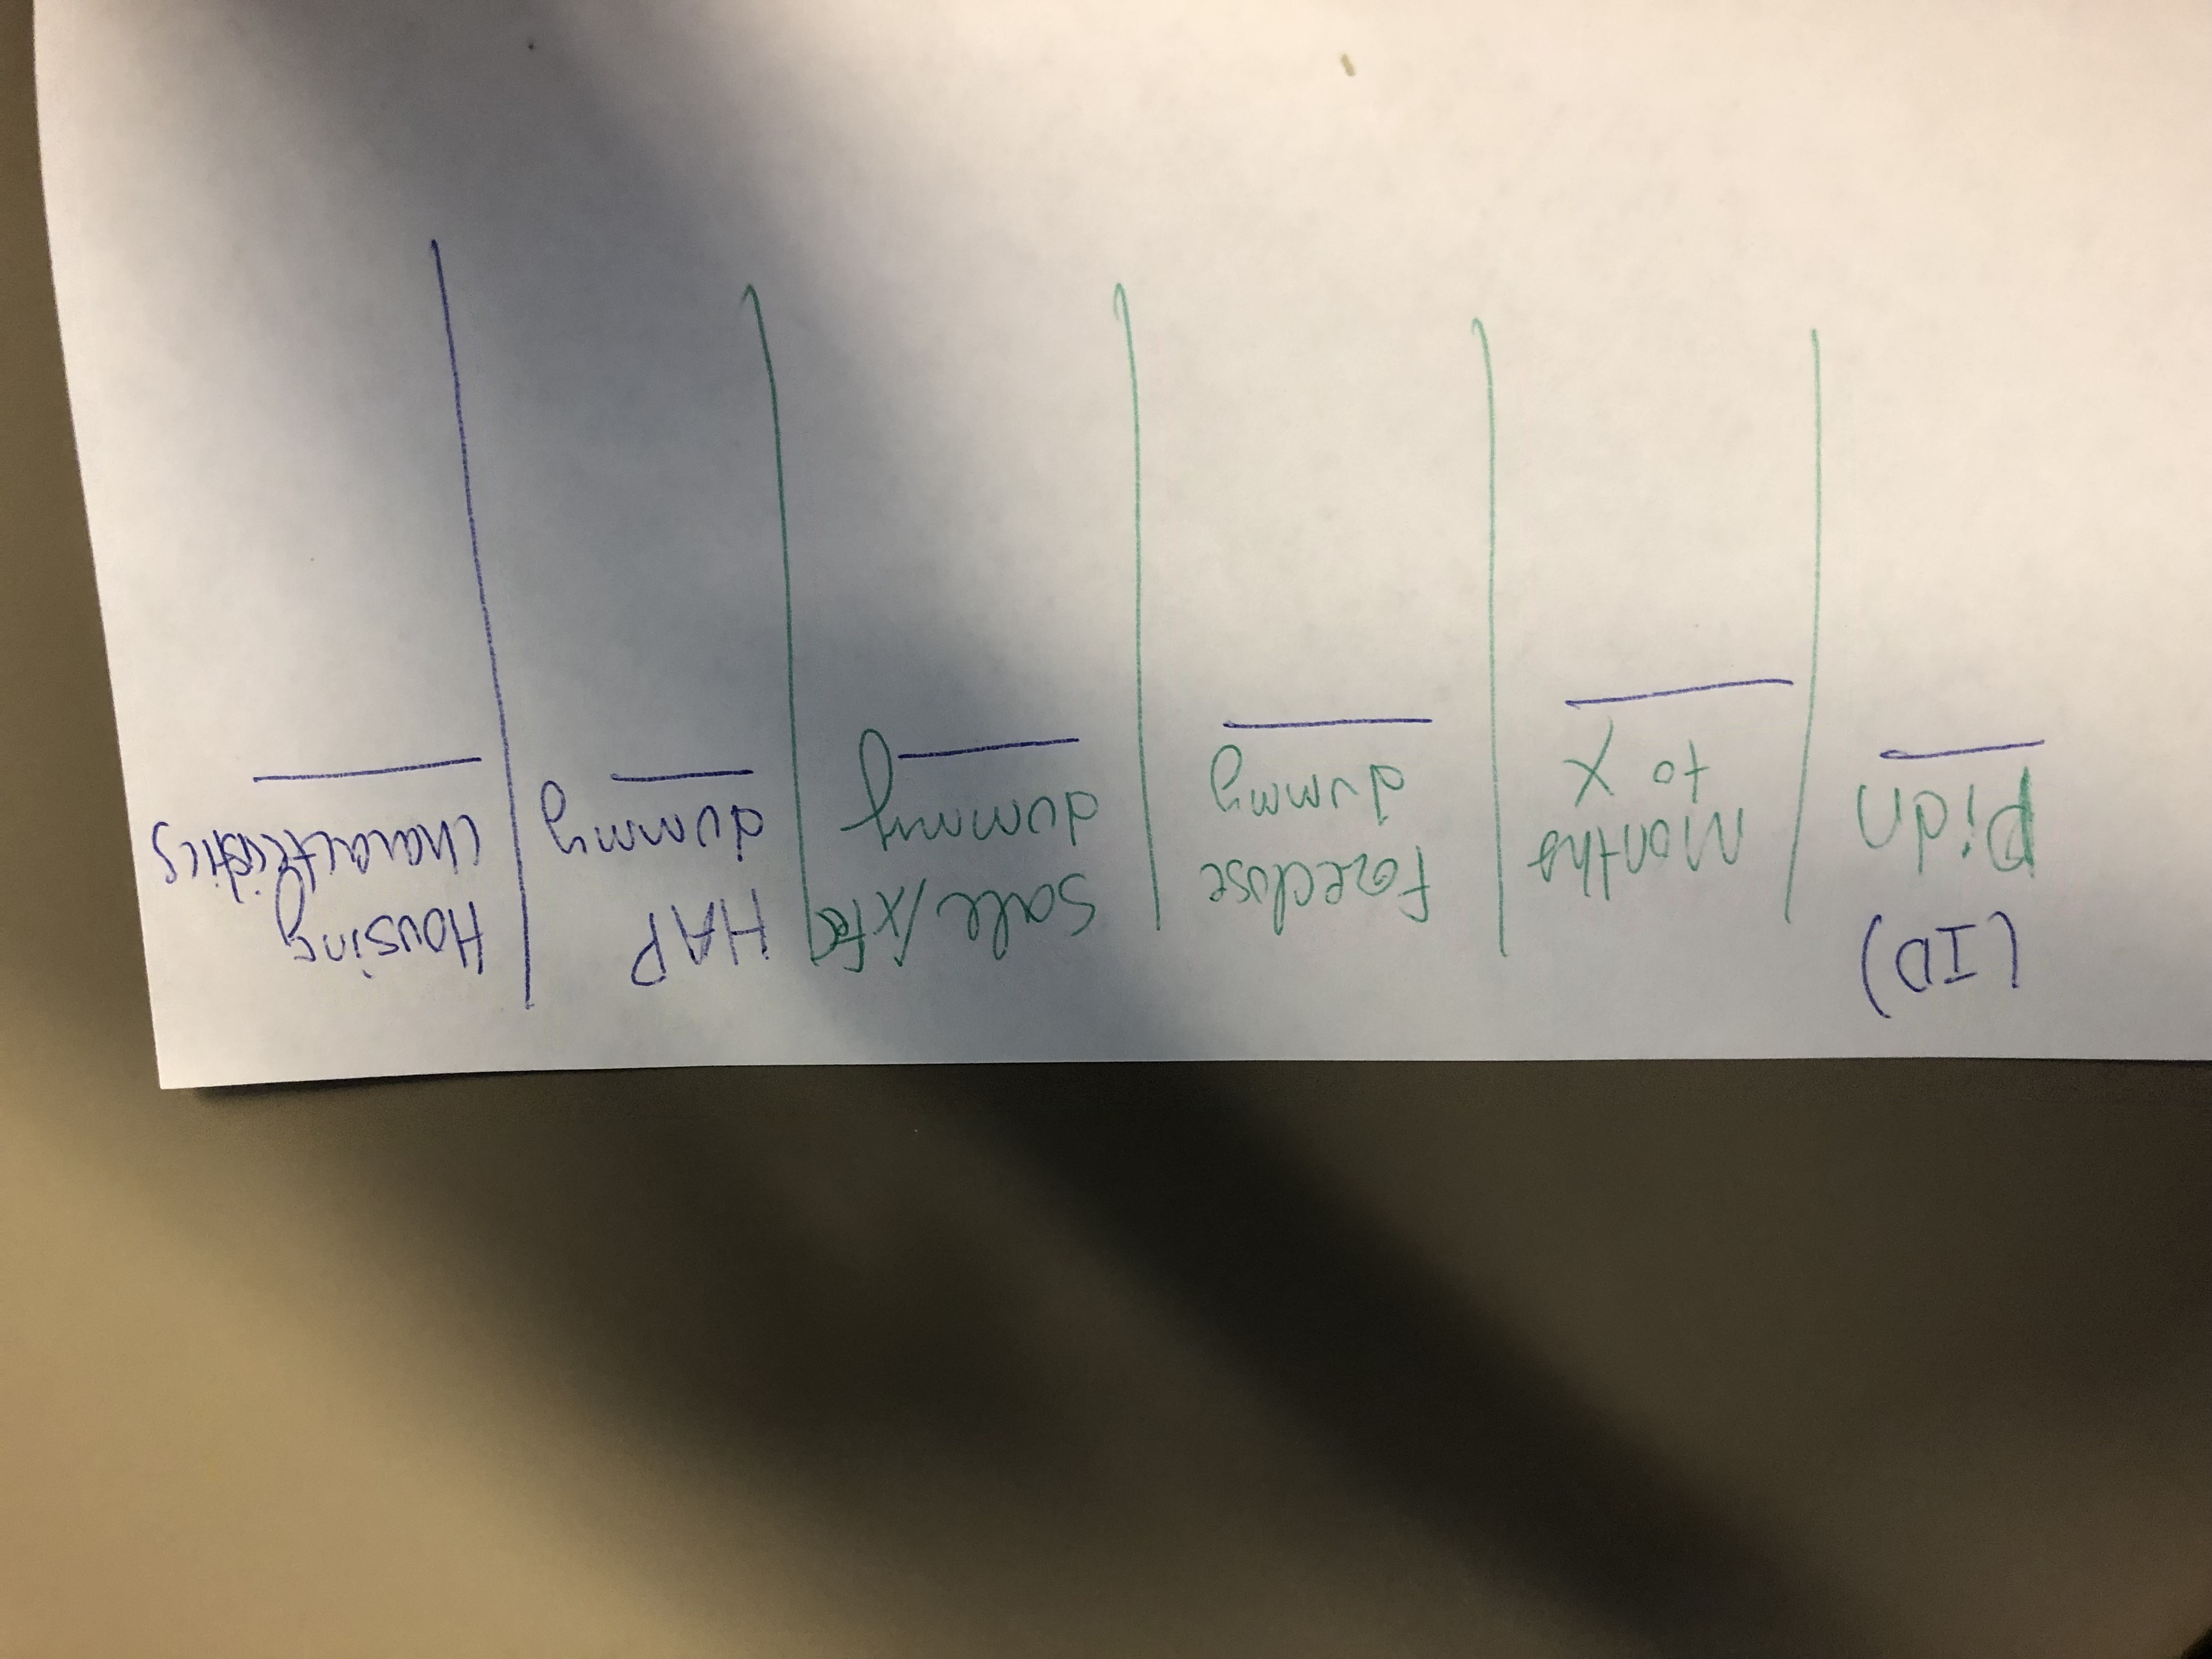 (ID)
Pidn
Months
to X
Foreclose
dummy
Sale/xfer
dummy
HAP
dummy
Housing
characteristics